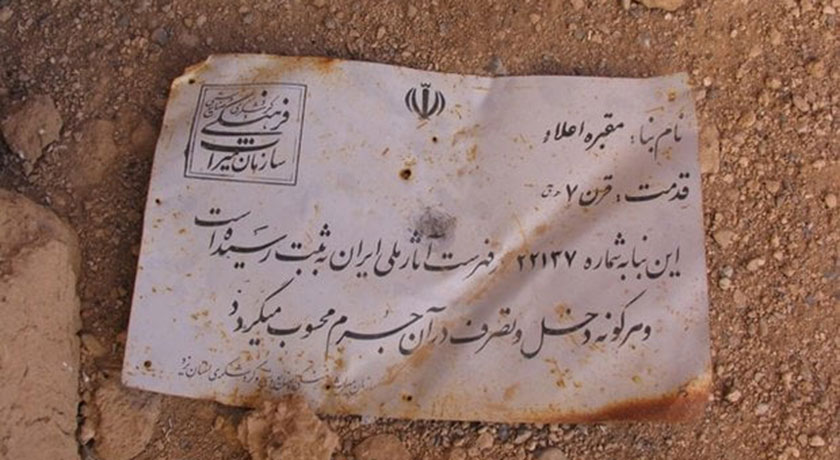 سازمان میراث
فرهنگی
نام بنا: مقبره اعلاء
قدمت: قرن ۷ ه‍.ق
این بنا به شماره ۲۲۱۳۷ فهرست آثار ملی ایران به ثبت رسیده است
و هرگونه دخل و تصرف در آن جرم محسوب میگردد
گردشگری استان یزد